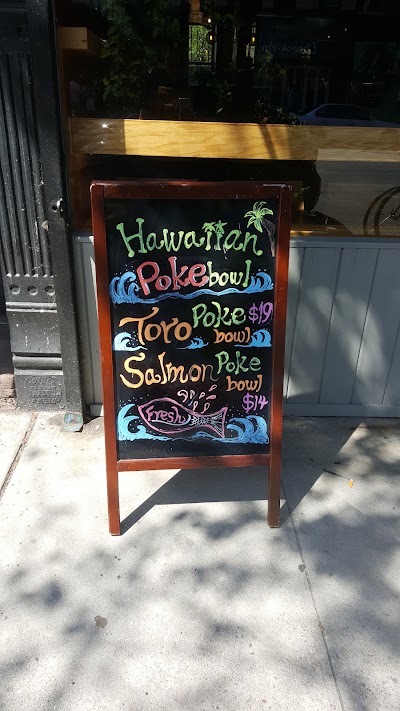 Hawaiian
Poke bowl
Toro Poke bowl $19
Salmon Poke bowl $14
Fresh